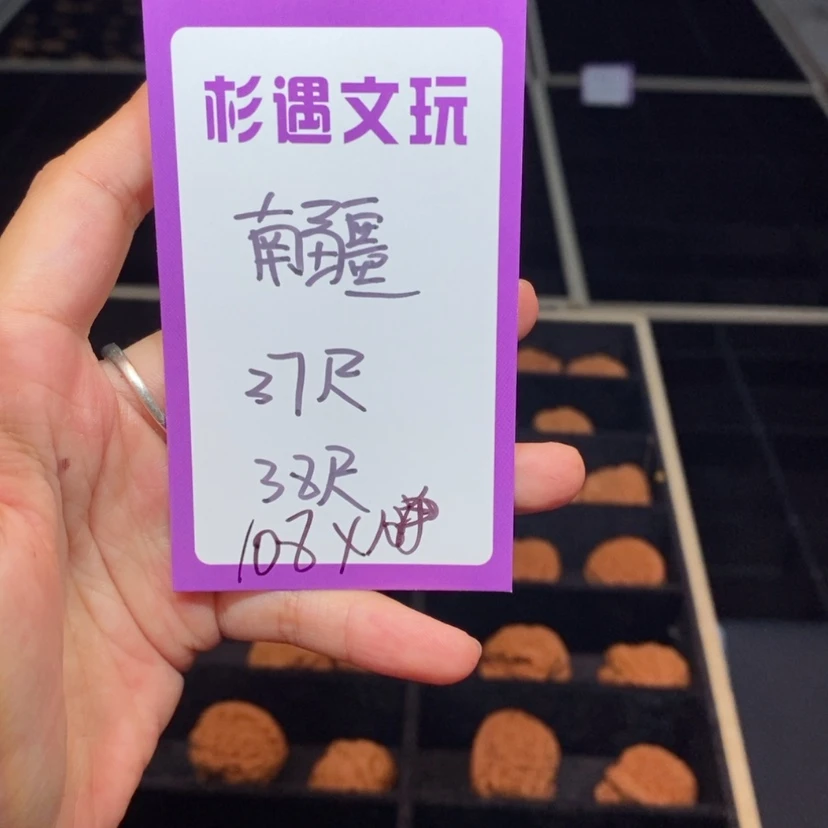 杉遇文玩
南疆
37尺
38尺
108X